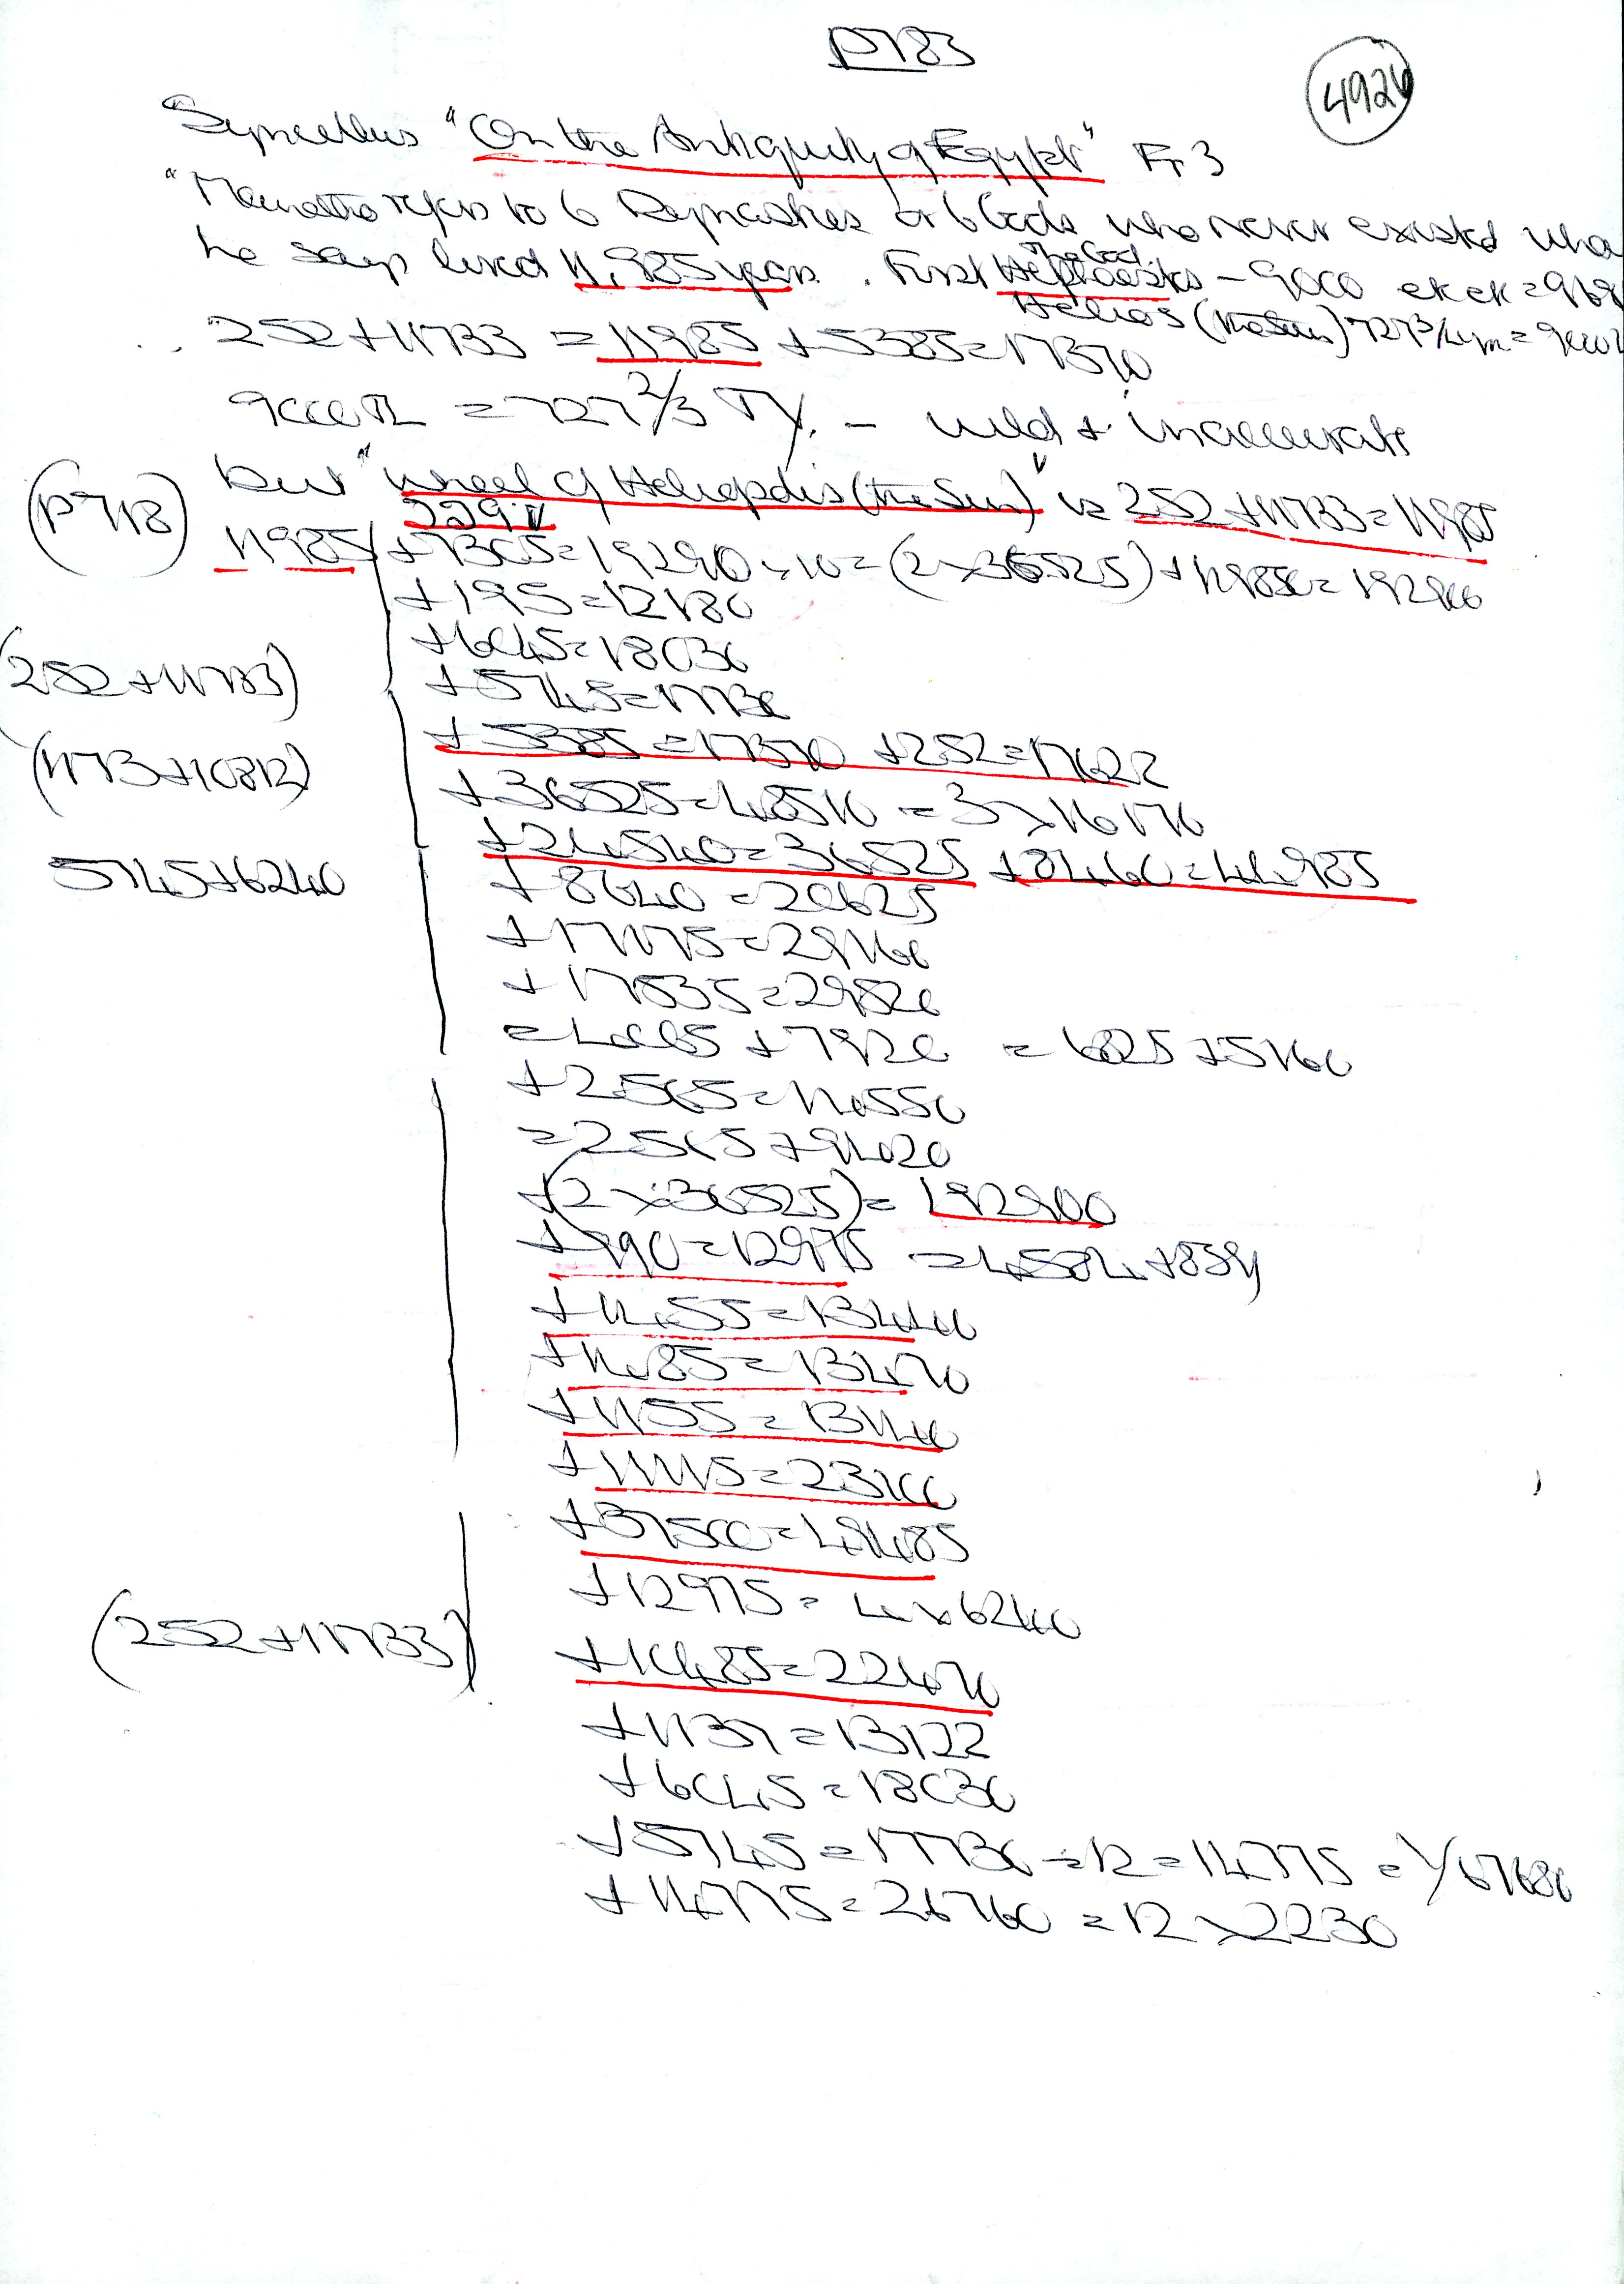 P783
4926
Syncellus "On the Antiquity of Egypt" Fr 3
"Manetho refers to 6 Dynasties or 6 Gods who never existed who
he says lived 11,985 years. First The God Hephaestus - 9000 etc etc = 968
Helios (the Sun) 727 3/4 yrs =
∴ 252 + 11733 = 11985 + 5385 = 17370
9000 = 727 2/3 TY. - wild + inaccurate
but "Wheel of Heliopolis (the Sun)" is 252 + 11733 = 11985
(P718)
11985 / + 7305 = 19290 × 10 = (2 × 36525) + 119850 = 192900
+ 195 = 12180
+ 6045 = 18030
(252 + 11733)
+ 5745 = 17730
+ 5385 = 17370 + 252 = 17622
(1173 + 10812)
+ 36525 = 48510 = 3 × 16170
+ 24540 = 36525 + 8460 = 44985
5745 + 6240
+ 8640 = 20625
+ 17175 = 29160
+ 17835 = 29820
= 4065 + 7920 = 6825 + 5160
+ 2565 = 14550
= 2565 + 9420
+ (2 × 36525) = 192900
+ 990 = 12975 = 4584 + 8391
+ 1455 = 13440
+ 1485 = 13470
+ 1155 = 13140
+ 11115 = 23100
+ 37500 = 49485
+ 12975 = 4 × 6240
(252 + 11733)
+ 10485 = 22470
+ 1137 = 13122
+ 6045 = 18030
+ 5745 = 17730 ÷ 12 = 14775 = 1/67680
+ 14775 = 26760 = 12 × 2230